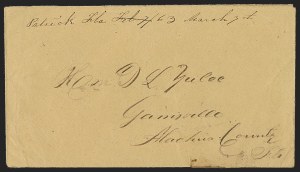 Fla Feb 7/63 March 7th
Hon D L Yulee
Gainsville
Alachua County
Fla